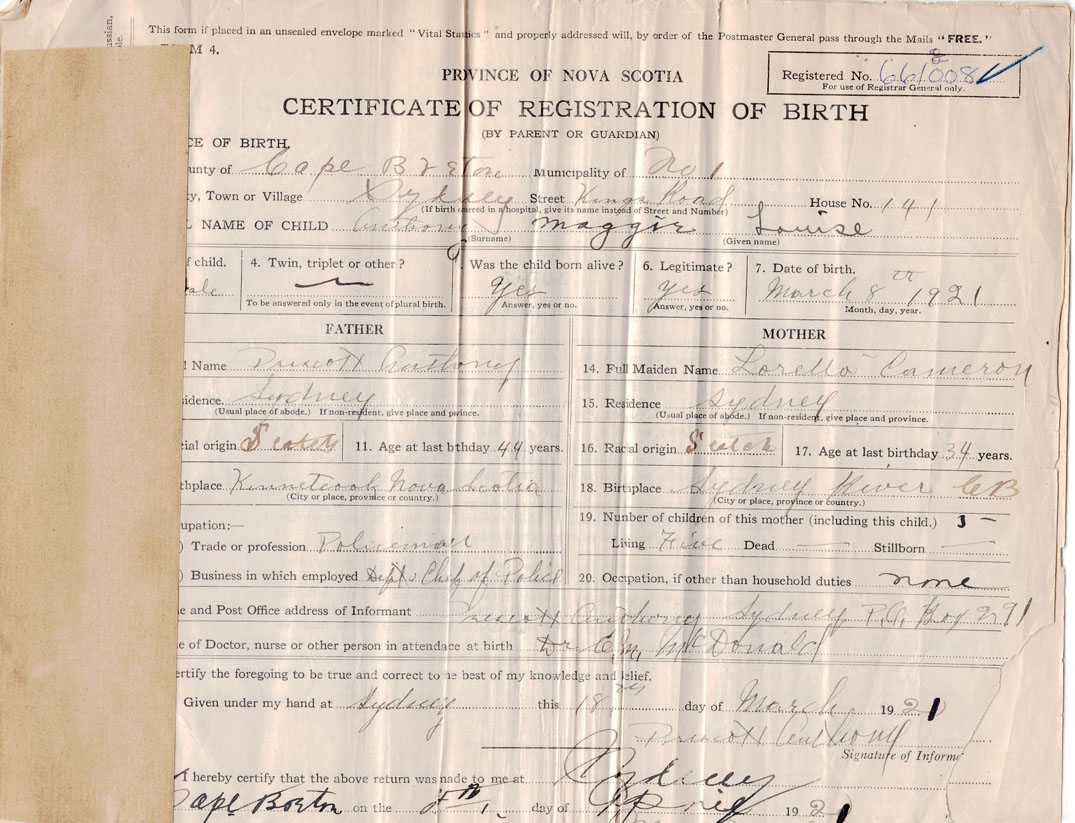 This form if placed in an unsealed envelope marked "Vital Stastics" and properly addressed will, by order of the Postmaster General pass through the Mails "FREE."
M 4.
PROVINCE OF NOVA SCOTIA
Registered No. 661008
For use of Registrar General only.
CERTIFICATE OF REGISTRATION OF BIRTH
(BY PARENT OR GUARDIAN)
CE OF BIRTH.
unty of Cape Breton Municipality of No 1
y, Town or Village Sydney Street Kings Road House No. 141
(If birth occurred in a hospital, give its name instead of Street and Number)
L NAME OF CHILD Anthony Maggie Louise
(Surname) (Given name)
f child. 4. Twin, triplet or other? Was the child born alive? 6. Legitimate? 7. Date of birth.
ale Yes yes March 8th 1921
To be answered only in the event of plural birth. Answer, yes or no. Answer, yes or no. Month, day, year.
FATHER MOTHER
l Name Prescott Anthony 14. Full Maiden Name Loretta Cameron
sidence. Sydney 15. Residence Sydney
(Usual place of abode.) If non-resident, give place and pvince. (Usual place of abode.) If non-resident, give place and province.
cial origin Scotch 11. Age at last bthday 44 years. 16. Racial origin Scotch 17. Age at last birthday 34 years.
thplace Kennetcook Nova Scotia 18. Birthplace Sydney River CB
(City or place, province or country.) (City or place, province or country.)
19. Nunber of children of this mother (including this child.) 5
cupation:—
) Trade or profession Policeman Living Five Dead Stillborn
) Business in which employed Dept. Chef of Police 20. Occpation, if other than household duties none
e and Post Office address of Informant Prescott Anthony Sydney P.O. Box 291
e of Doctor, nurse or other person in attendace at birth Dr. E. M. McDonald
ertify the foregoing to be true and correct to he best of my knowledge and elief.
Given under my hand at Sydney this 18 day of March 1921
Prescott Anthony
Signature of Informa
I hereby certify that the above return was nade to me at Sydney
Cape Breton on the day of April 1921